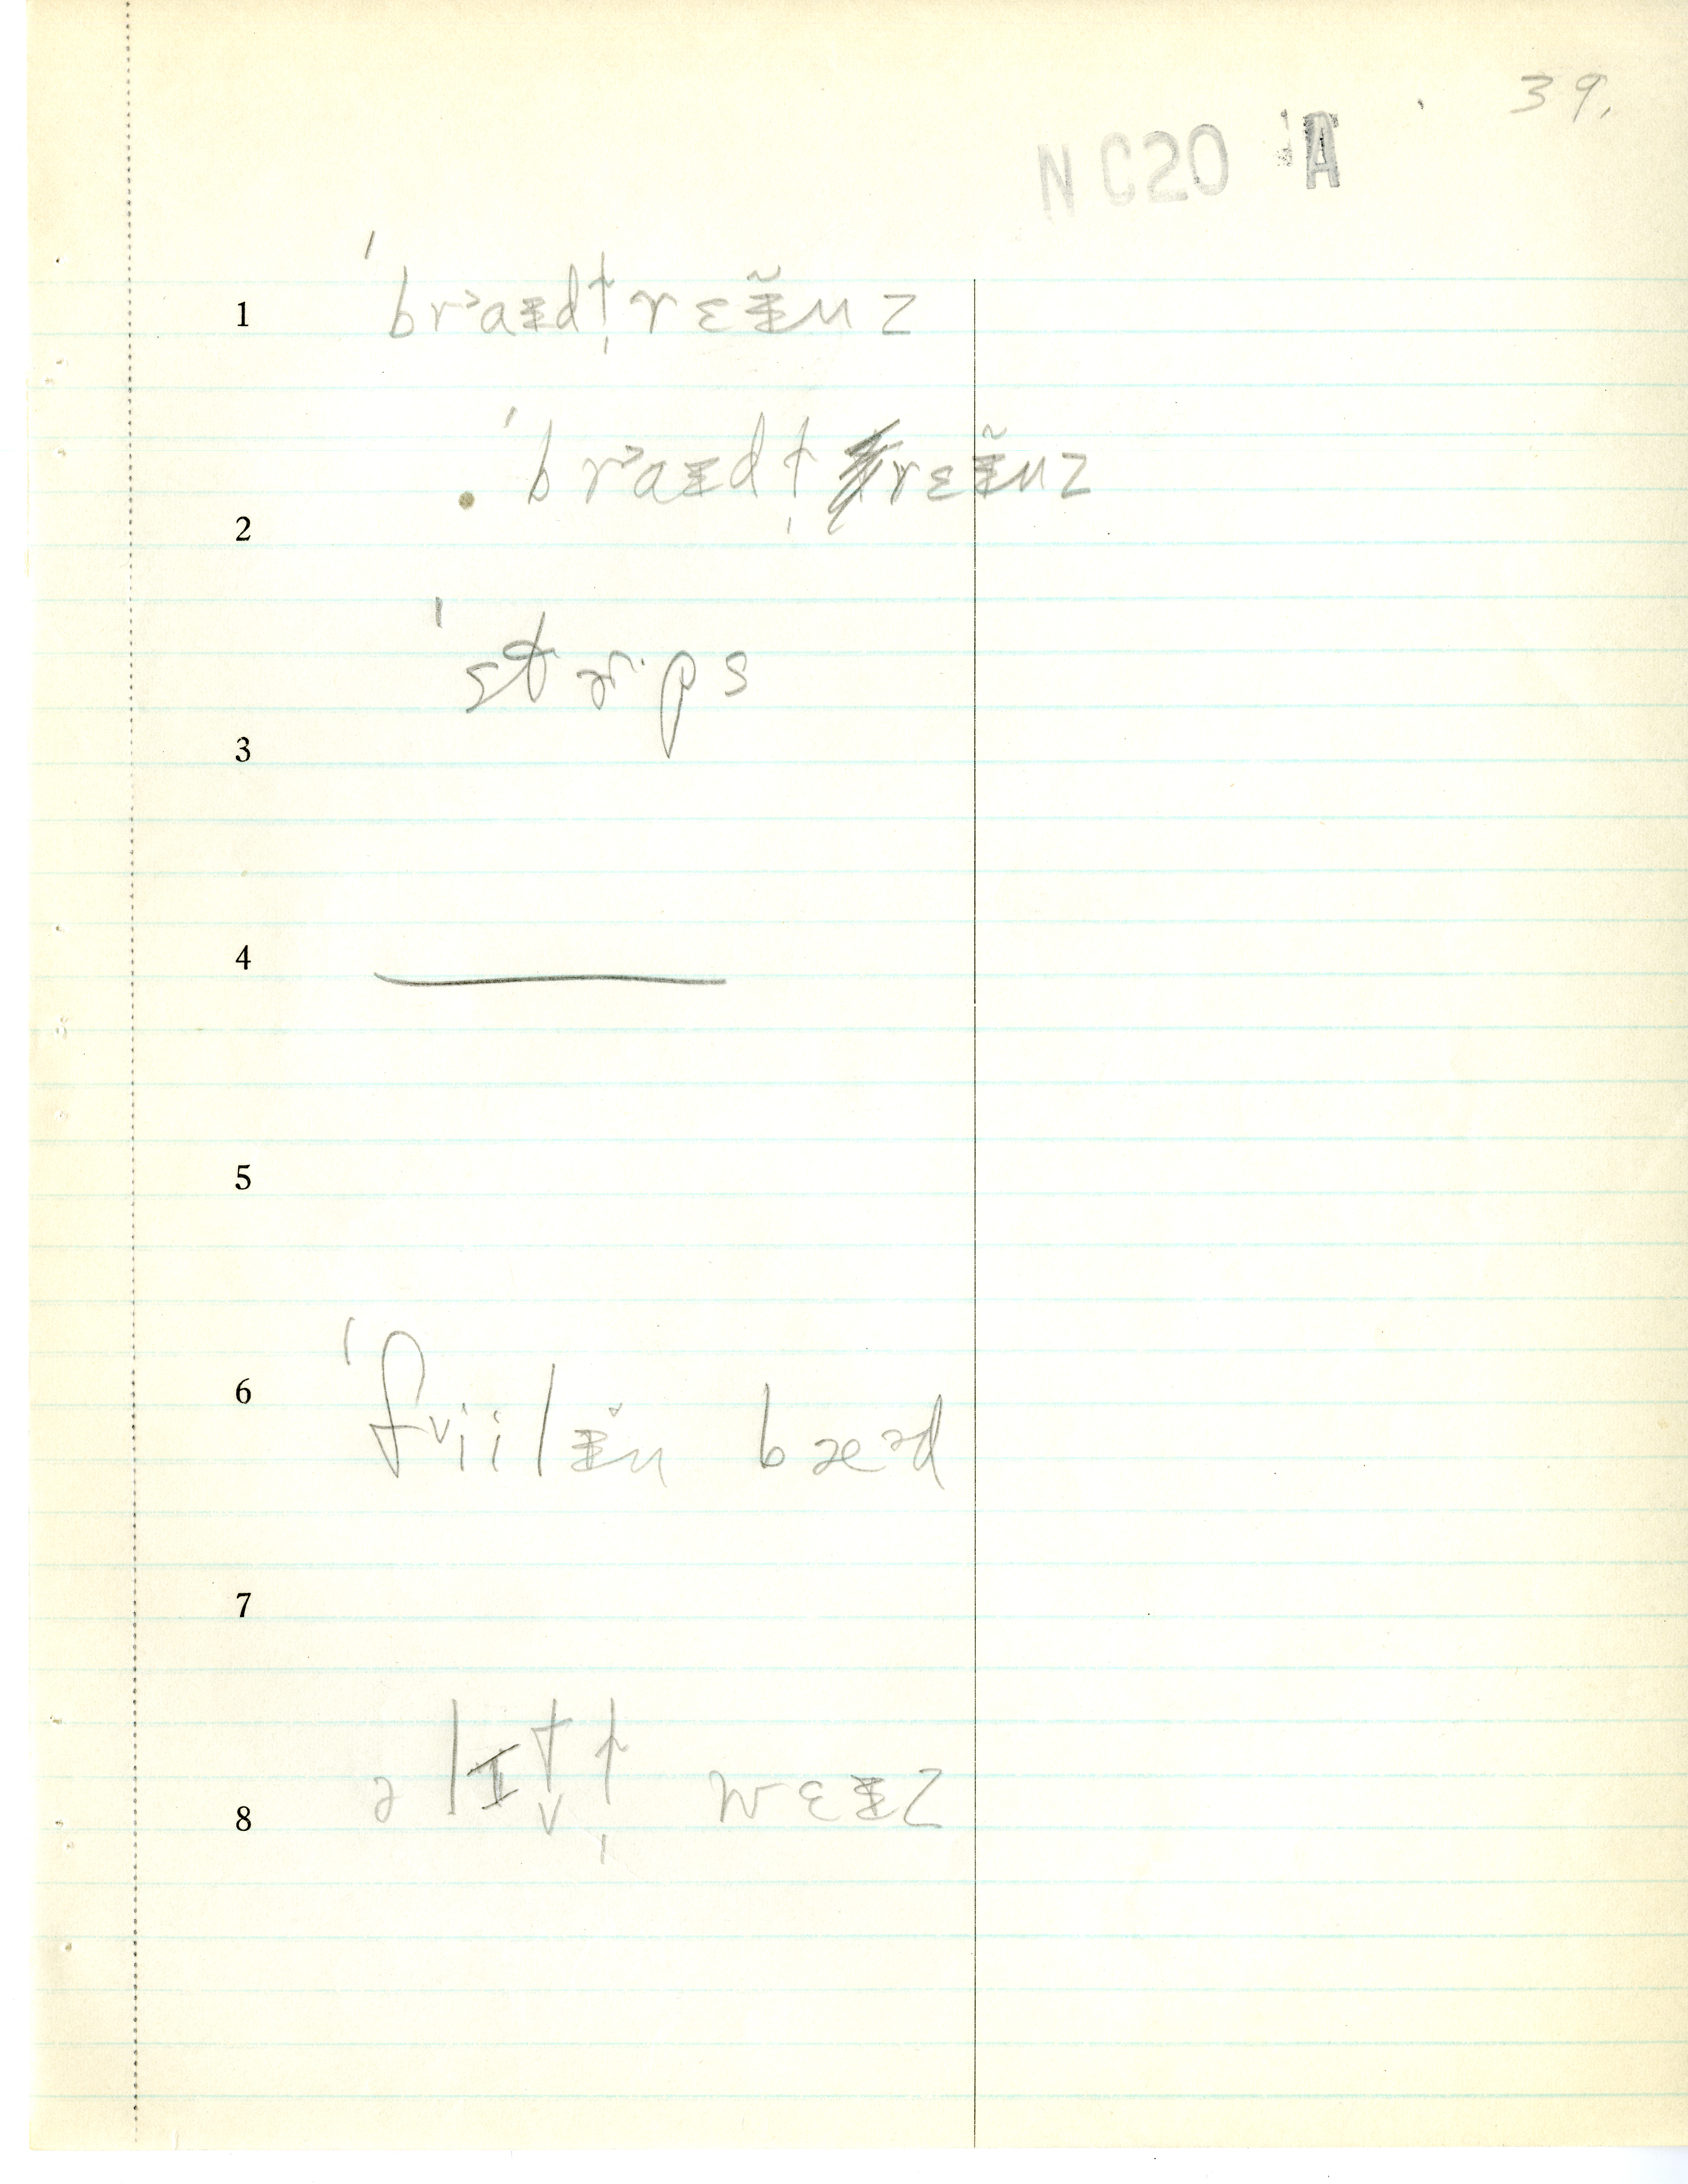 39.
N C20 A
1 ˈbrᵊaᵻdt̩rɛᵻ̃nz
ˈbrᵊaᵻdt̩ rɛᵻ̃nz
2
ˈstrɪps
3
4
5
6 ˈfviilᵻ̆n bæᵊd
7
8 ə lɪt̬t̩ wɛᵻz